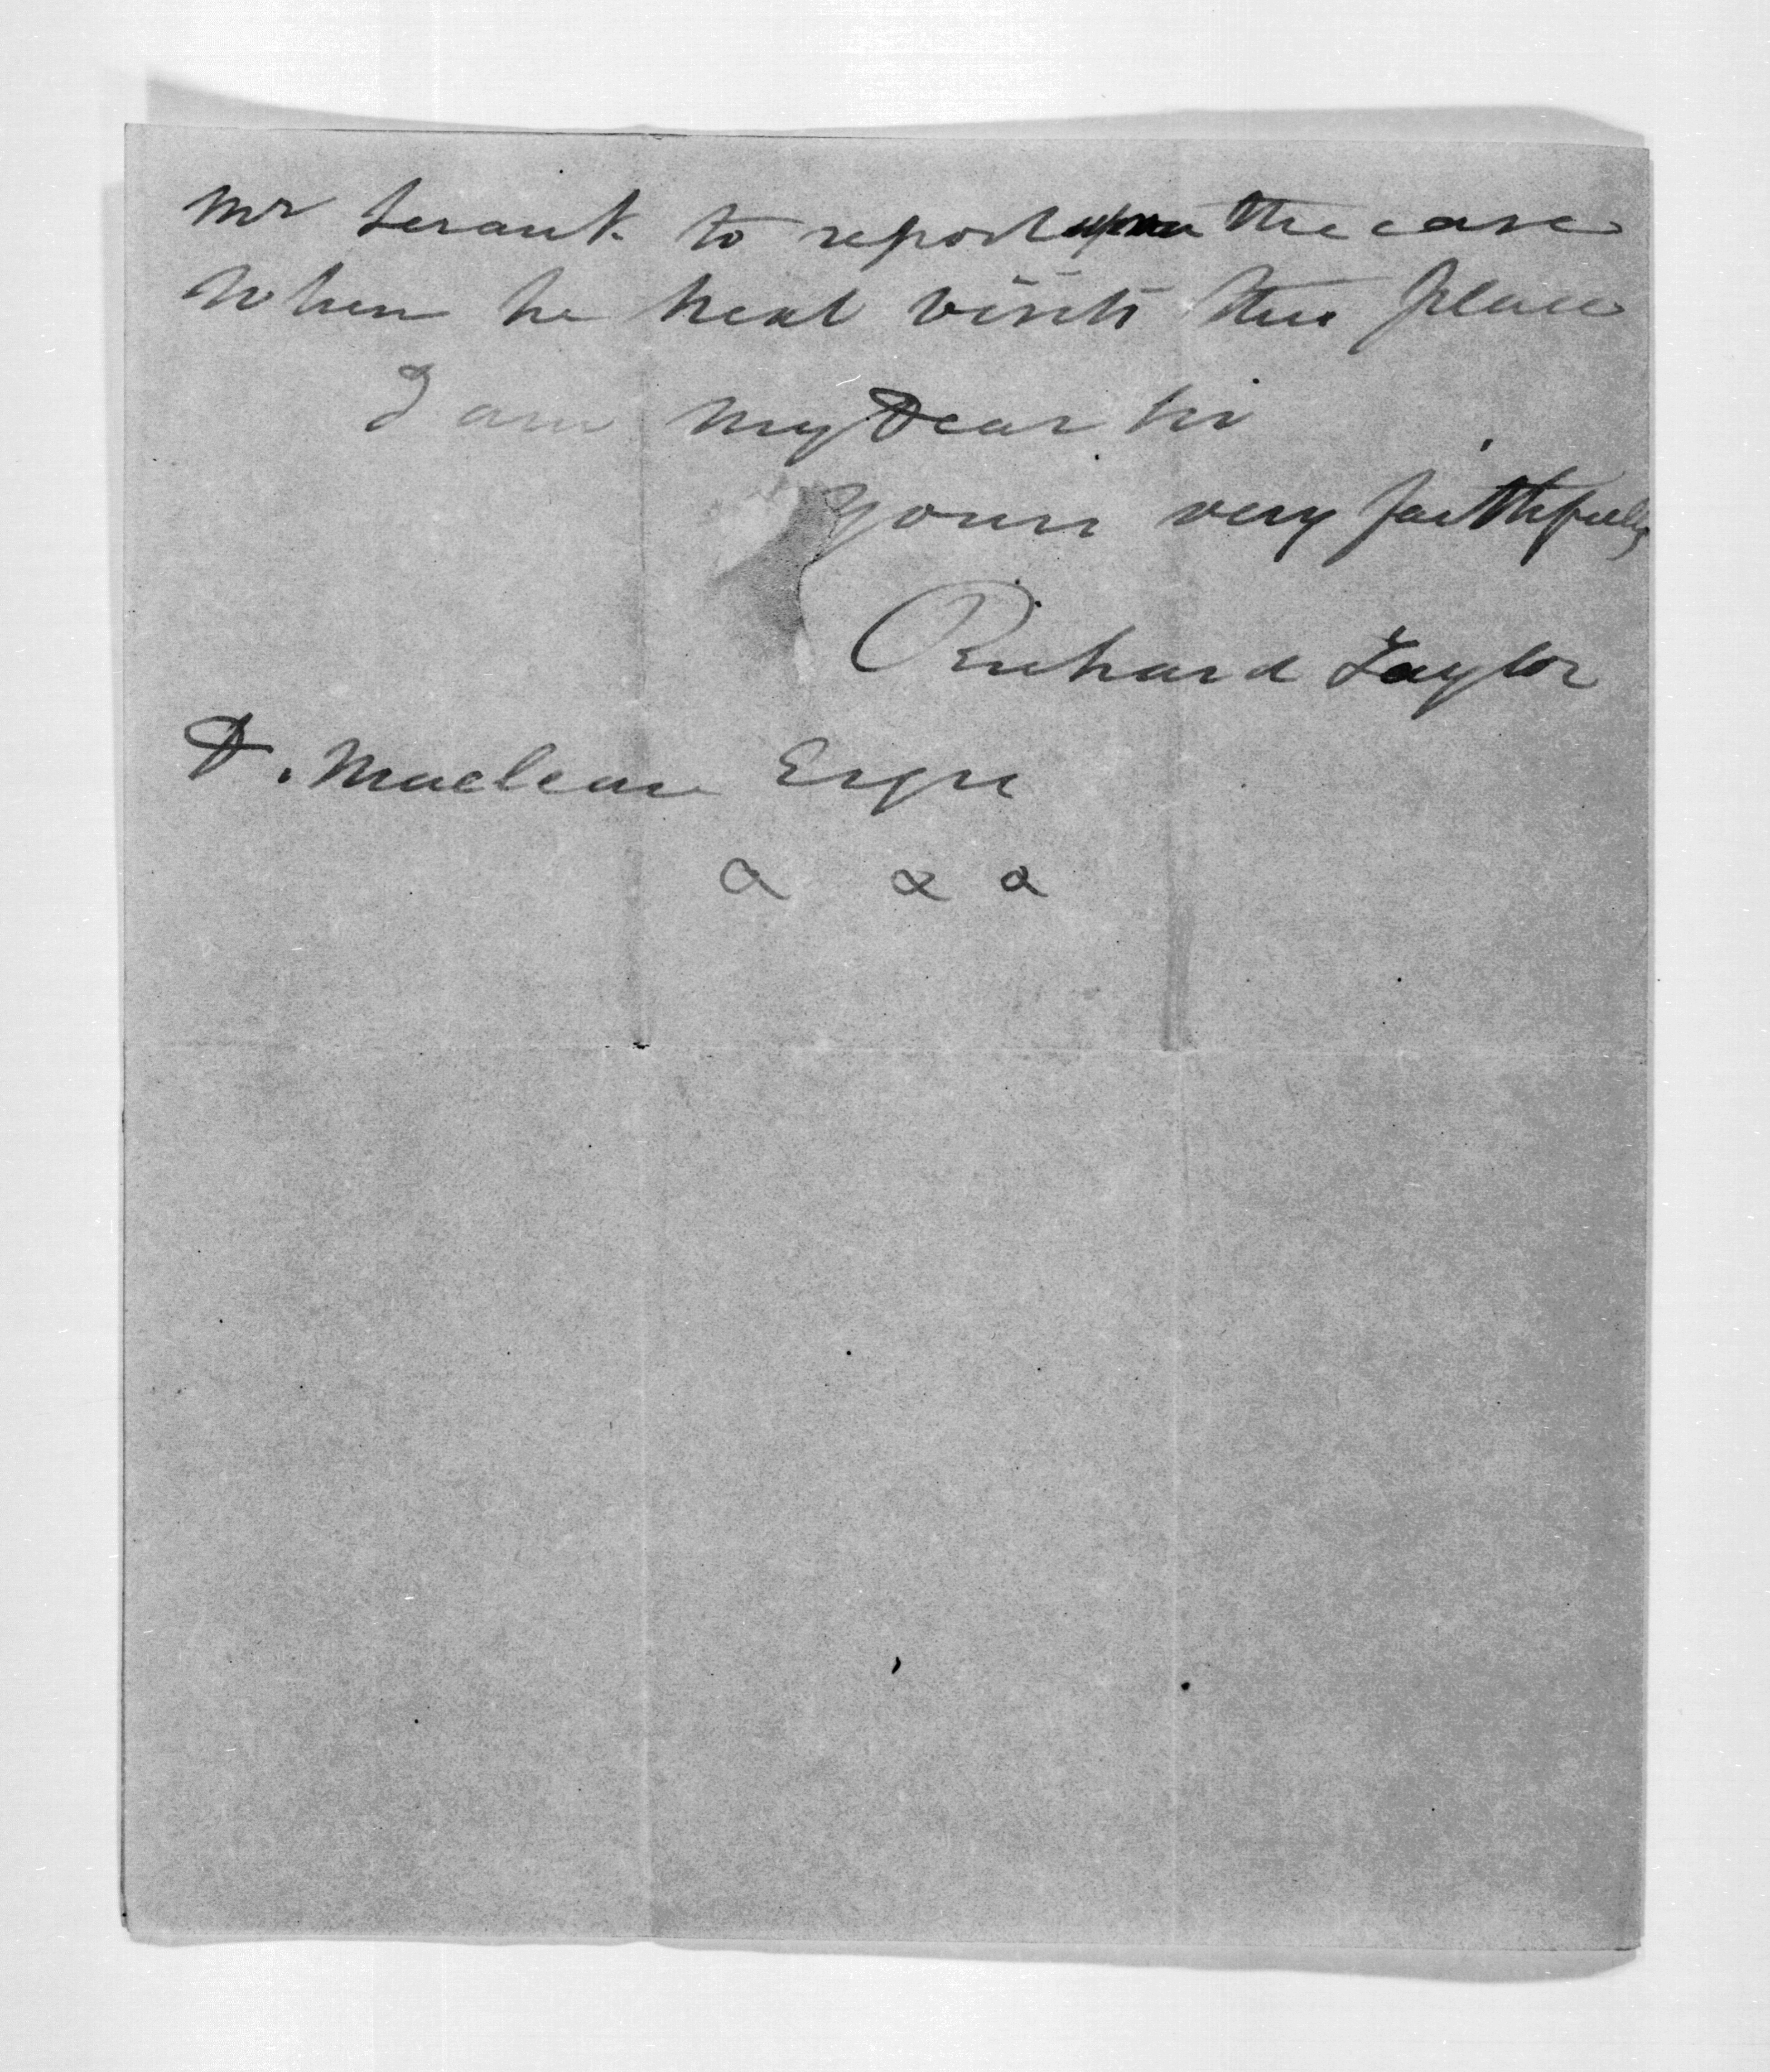 Mr Searancke to report upon the case
When he next visits this place
I am My Dear Sir
yours very faithfully
Richard Taylor
D. Maclean Esqre
a a a